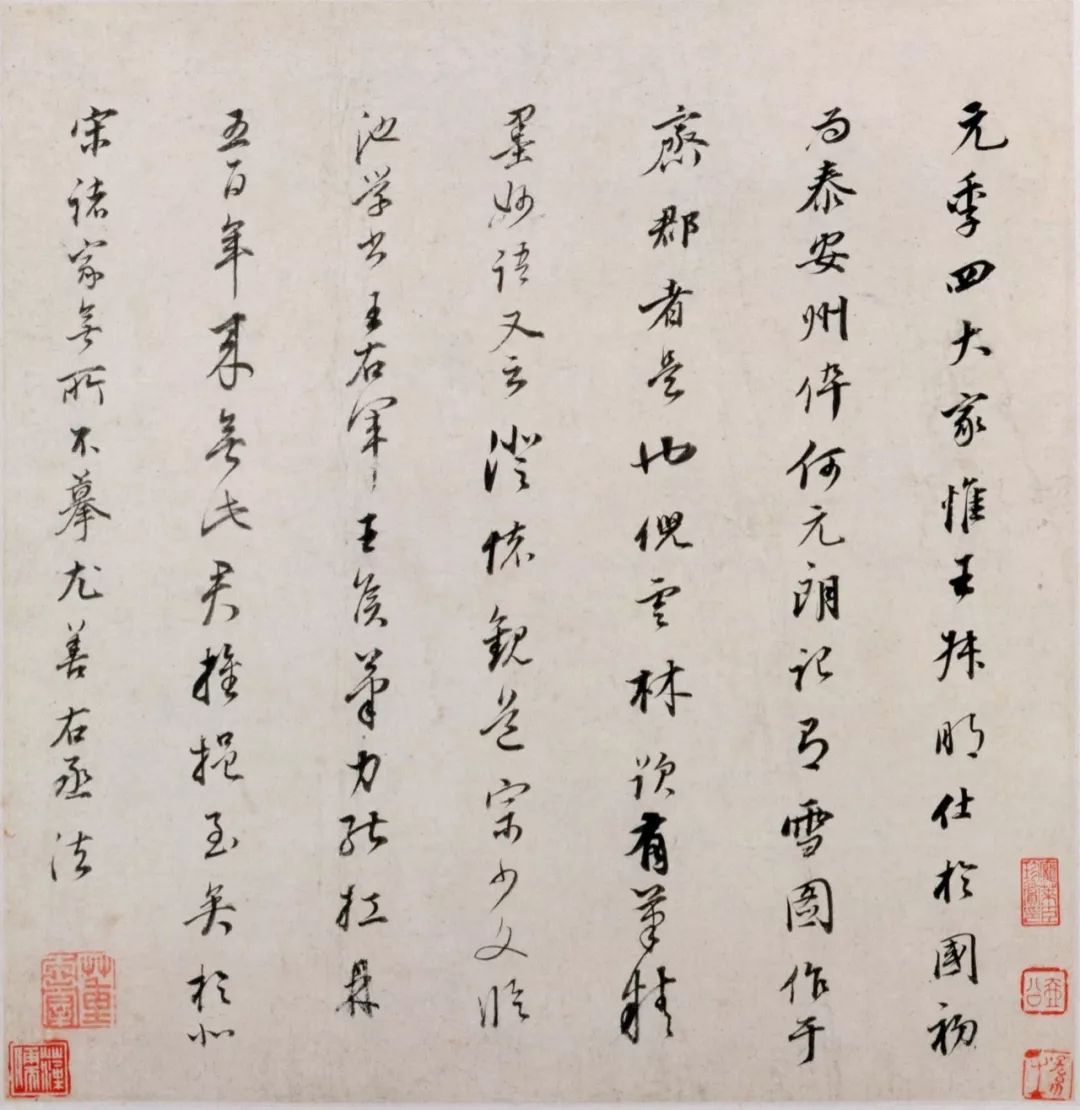 元季四大家惟王叔明仕於國初
为泰安州倅何元朗记有雪图作于
齋郡者是也倪雲林跋有筆精
墨妙语又云澄懷觀道宗少文临
池学书王右军王侯筆力能扛鼎
五百年来無此君推挹至矣於北
宋诸家無所不摹尤善右丞法